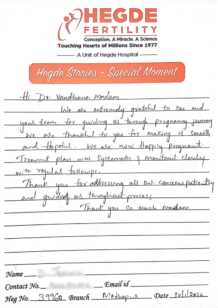 HEGDE
FERTILITY
Conception. A Miracle. A Science
Touching Hearts of Millions Since 1977
A Unit of Hegde Hospital
Hegde Stories - Special Moment
Hi Dr. Vandhana madam
We are extremely grateful to you and
your team for guiding us through pregnancy journey
We are thankful to you for making it smooth
and Hopeful. We are now Happily pregnant.
Treatment plan was Systematic & monitored closely
with regular followups.
Thank you for addressing all our concerns patiently
and guiding us throughout process
Thank you so much madam
Name
Contact No. Email id
Heg No. Branch Madhapur Date